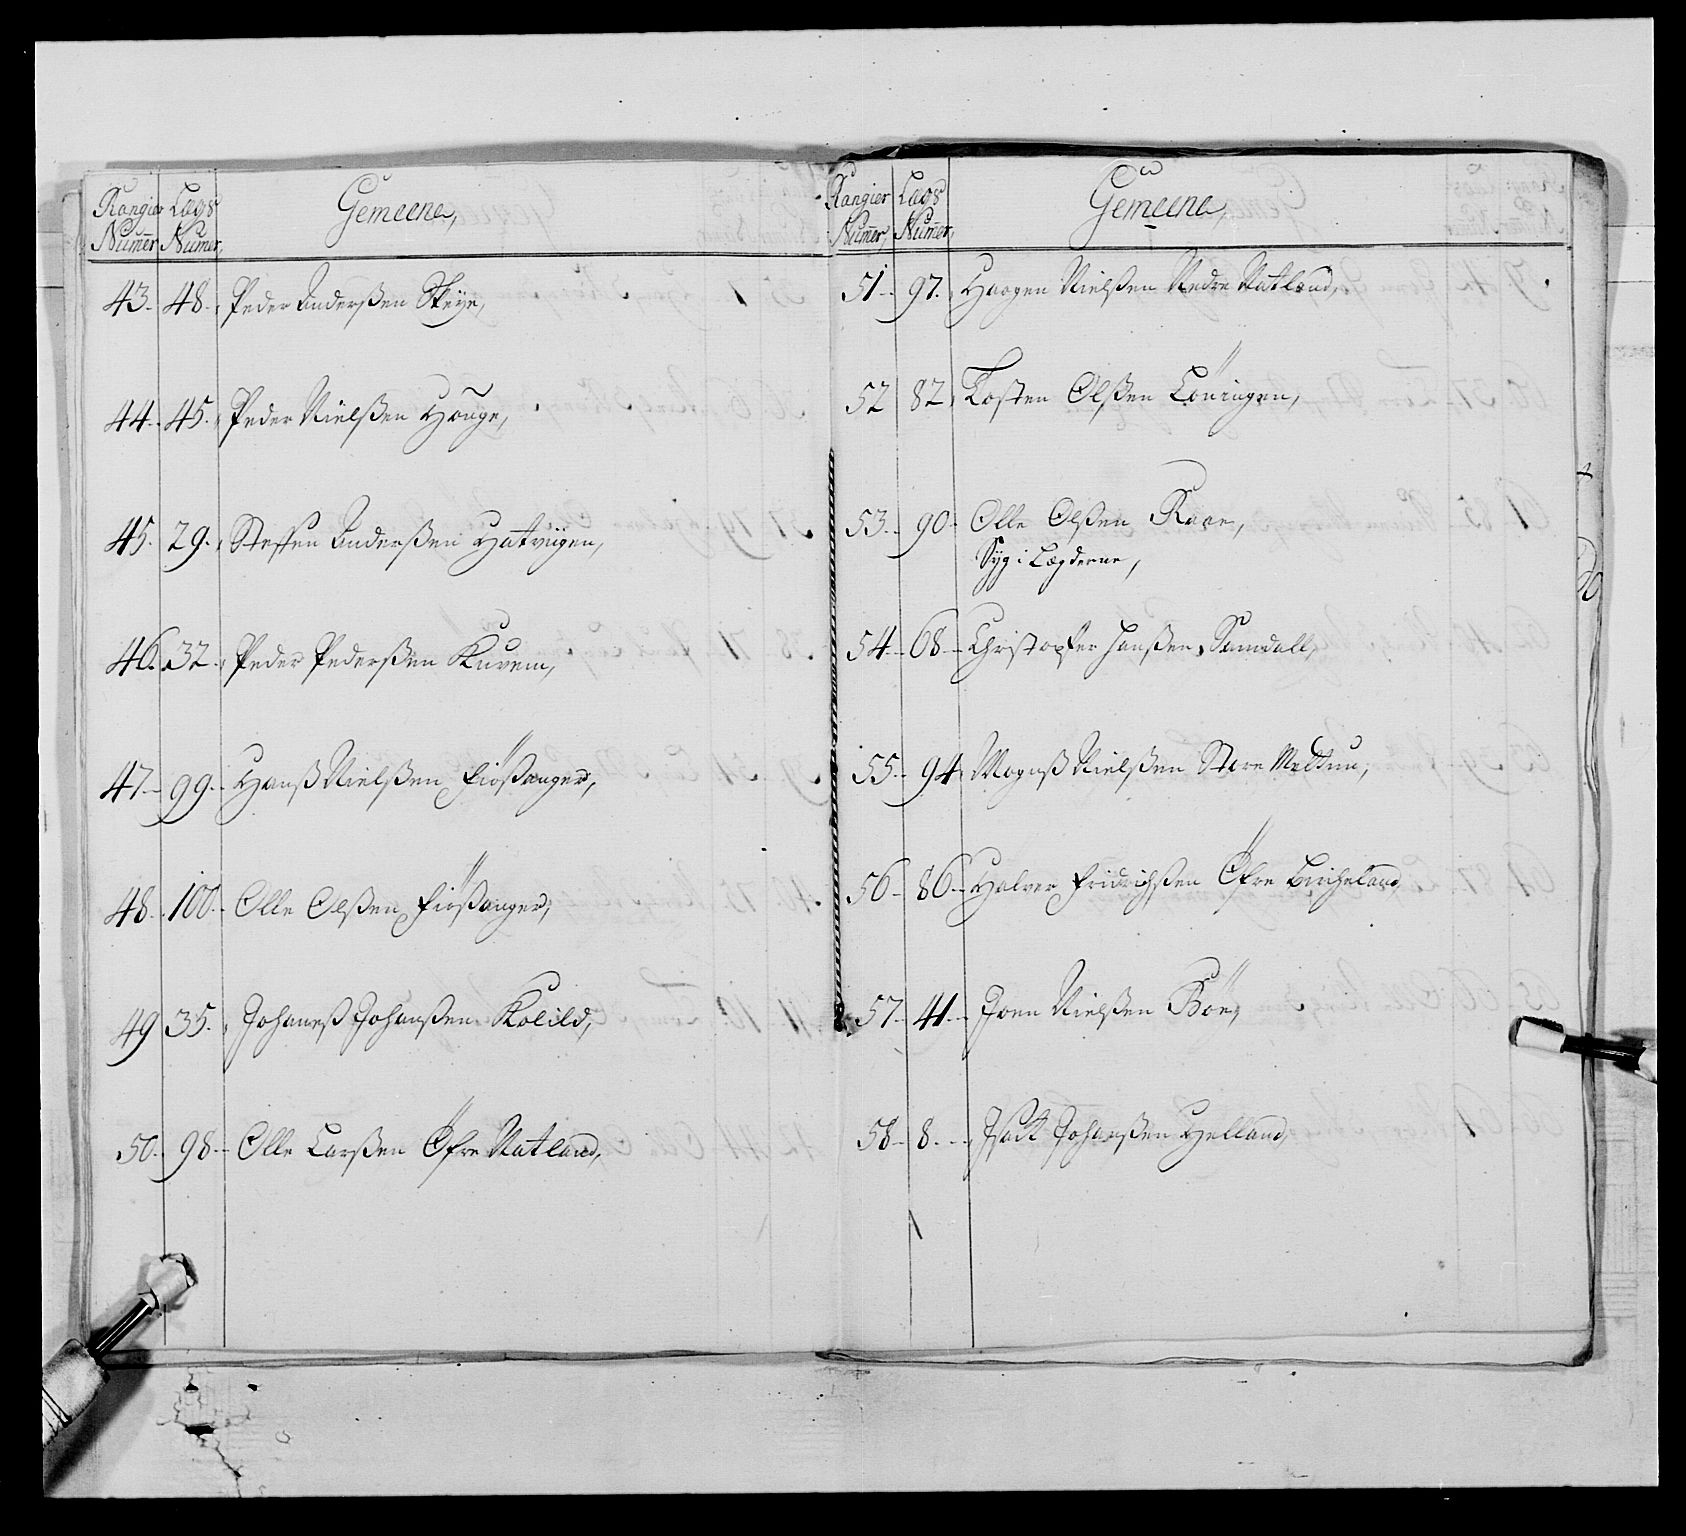 Rangier Numer Lægs Numer, Gemeene,
43. 48. Peder Anderßen Skeye,
44. 45. Peder Nielßen Houge,
45. 29. Steffen Anderßen Hatviigen,
46. 32. Peder Pederßen Kuvem,
47 99. Hanß Nielßen Fiößanger,
48. 100. Olle Olßen Fiößanger,
49 35. Johaneß Johanßen Kolild,
50. 98 Olle Larßen Öfre Natland,
Rangier Numer, Lægs Numer, Gemeene,
51 97. Haagen Nielßen Nedre Natland,
52 82, Tosten Olßen Löningen,
53. 90 Olle Olßen Raae,
Syg i Lægderne,
54 68 Christopfer Hanßen, Samdall,
55 94 Mognß Nielßen Store Meltun,
56 86 Halver Fridrichßen Öfre Bircheland,
57 41 Joen Nielßen Böe,
58 8. Isack Johanßen Helland,